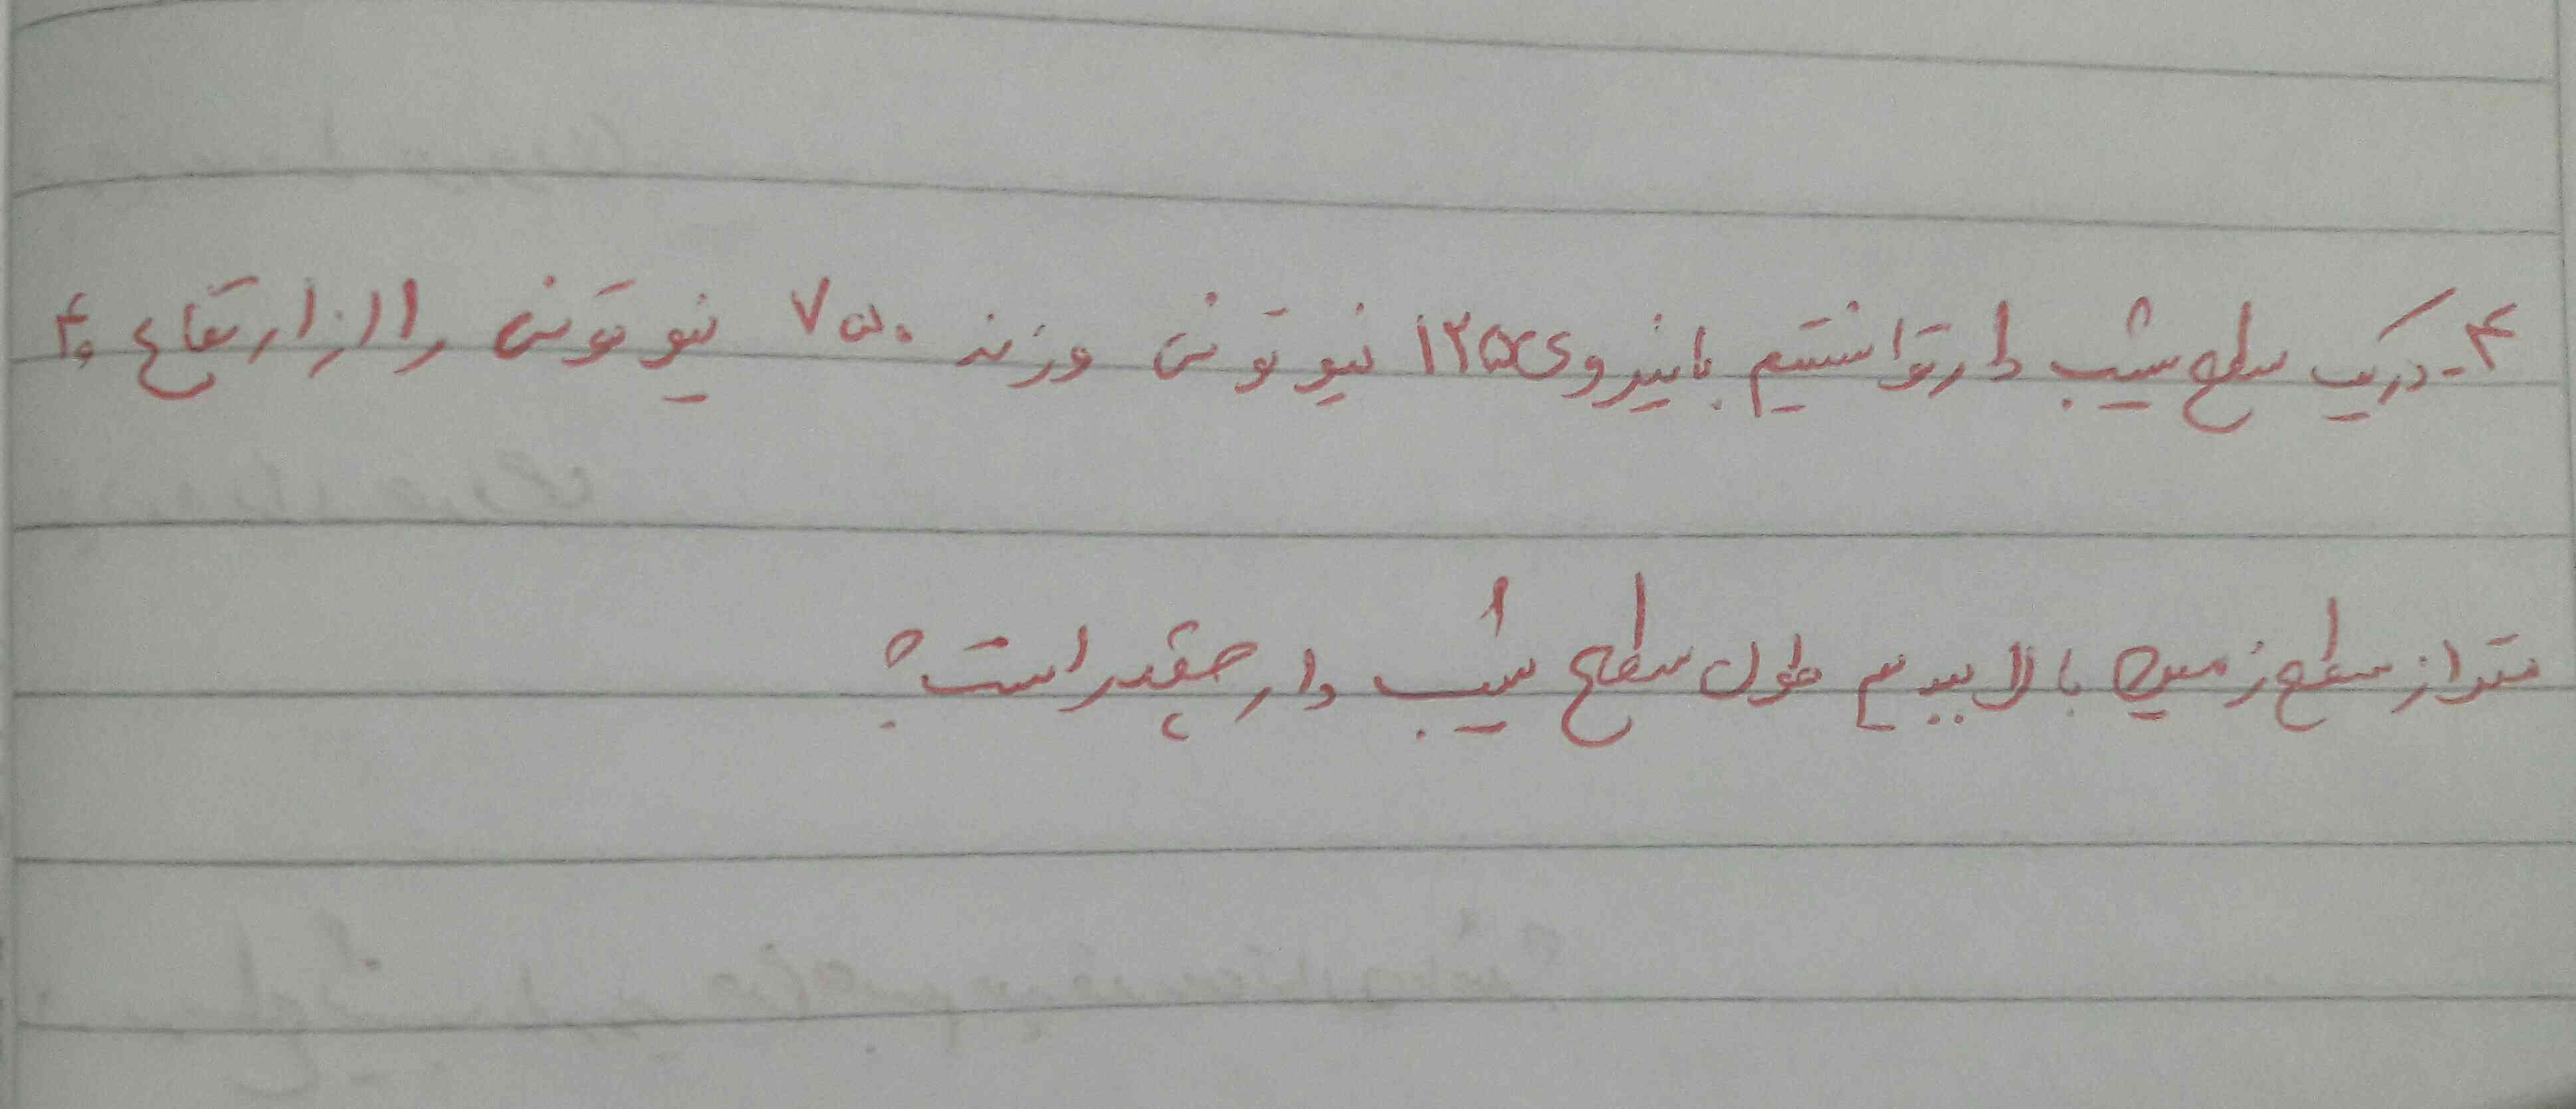 ۴- در یک سطح شیب دار توانستیم با نیروی ۱۲۵ نیوتون وزنه ۷۵۰ نیوتونی را از ارتفاع
متر از سطح زمین بالا ببریم طول سطح شیب دار چقدر است؟